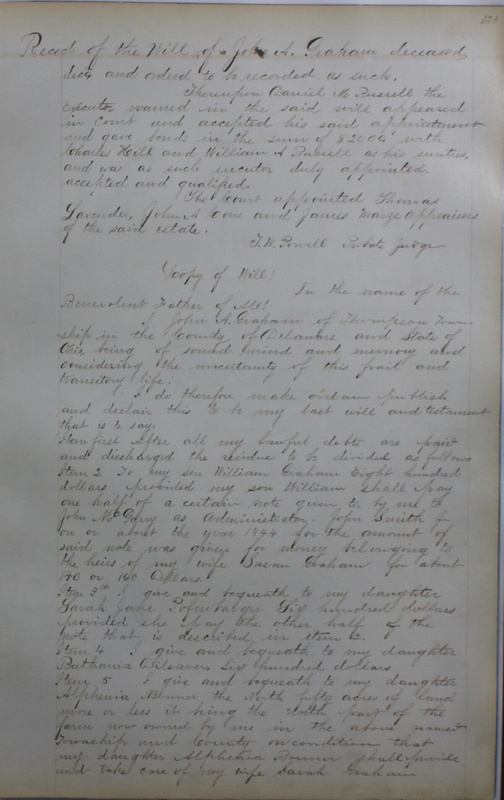 323
Record of the Will of John A. Graham deceased
decd and ordered to be recorded as such.
Thereupon Daniel M Russell the
Executor named in the said will appeared
in Court and accepted his said appointment
and gave bonds in the sum of $2000 with
Charles Hill and William A Russell as his sureties,
and was as such executor duly appointed,
accepted and qualified.
The Court appointed Thomas
Lavender, John A Cone and James Maize appraisers
of the said estate.
T. W. Powell Probate Judge
(Copy of Will)
In the name of the
Benevolent Father of All!
I John A. Graham of Thompson Town-
ship in the County of Delaware and State of
Ohio being of sound mind and memory and
considering the uncertainty of this frail and
transitory life;
I do therefore make ordain publish
and declair this to be my last will and testament
that is to say,
Item first After all my lawful debts are paid
and discharged the residue to be divided as follows
Item 2 To my son William Graham Eight hundred
dollars provided my son William shall pay
one half of a certain note given to by me to
John Mc as Administrator. John Smith
on or about the year 1844 for the amount of
said note was given for money belonging to
the heirs of my wife Susan Graham for about
140 or 160 Dollars.
Item 3rd I give and bequeath to my daughter
Sarah Jane Six hundred dollars
provided she pay the other half of the
note that is described in item 2.
Item 4 I give and bequeath to my daughter
Bathania Six hundred dollars
Item 5 I give and bequeath to my daughter
Alphenia the North fifty acres of land
more or less it being the North part of the
farm now owned by me in the above named
Township and County on condition that
my daughter Alphenia shall provide
and take care of my wife Sarah Graham